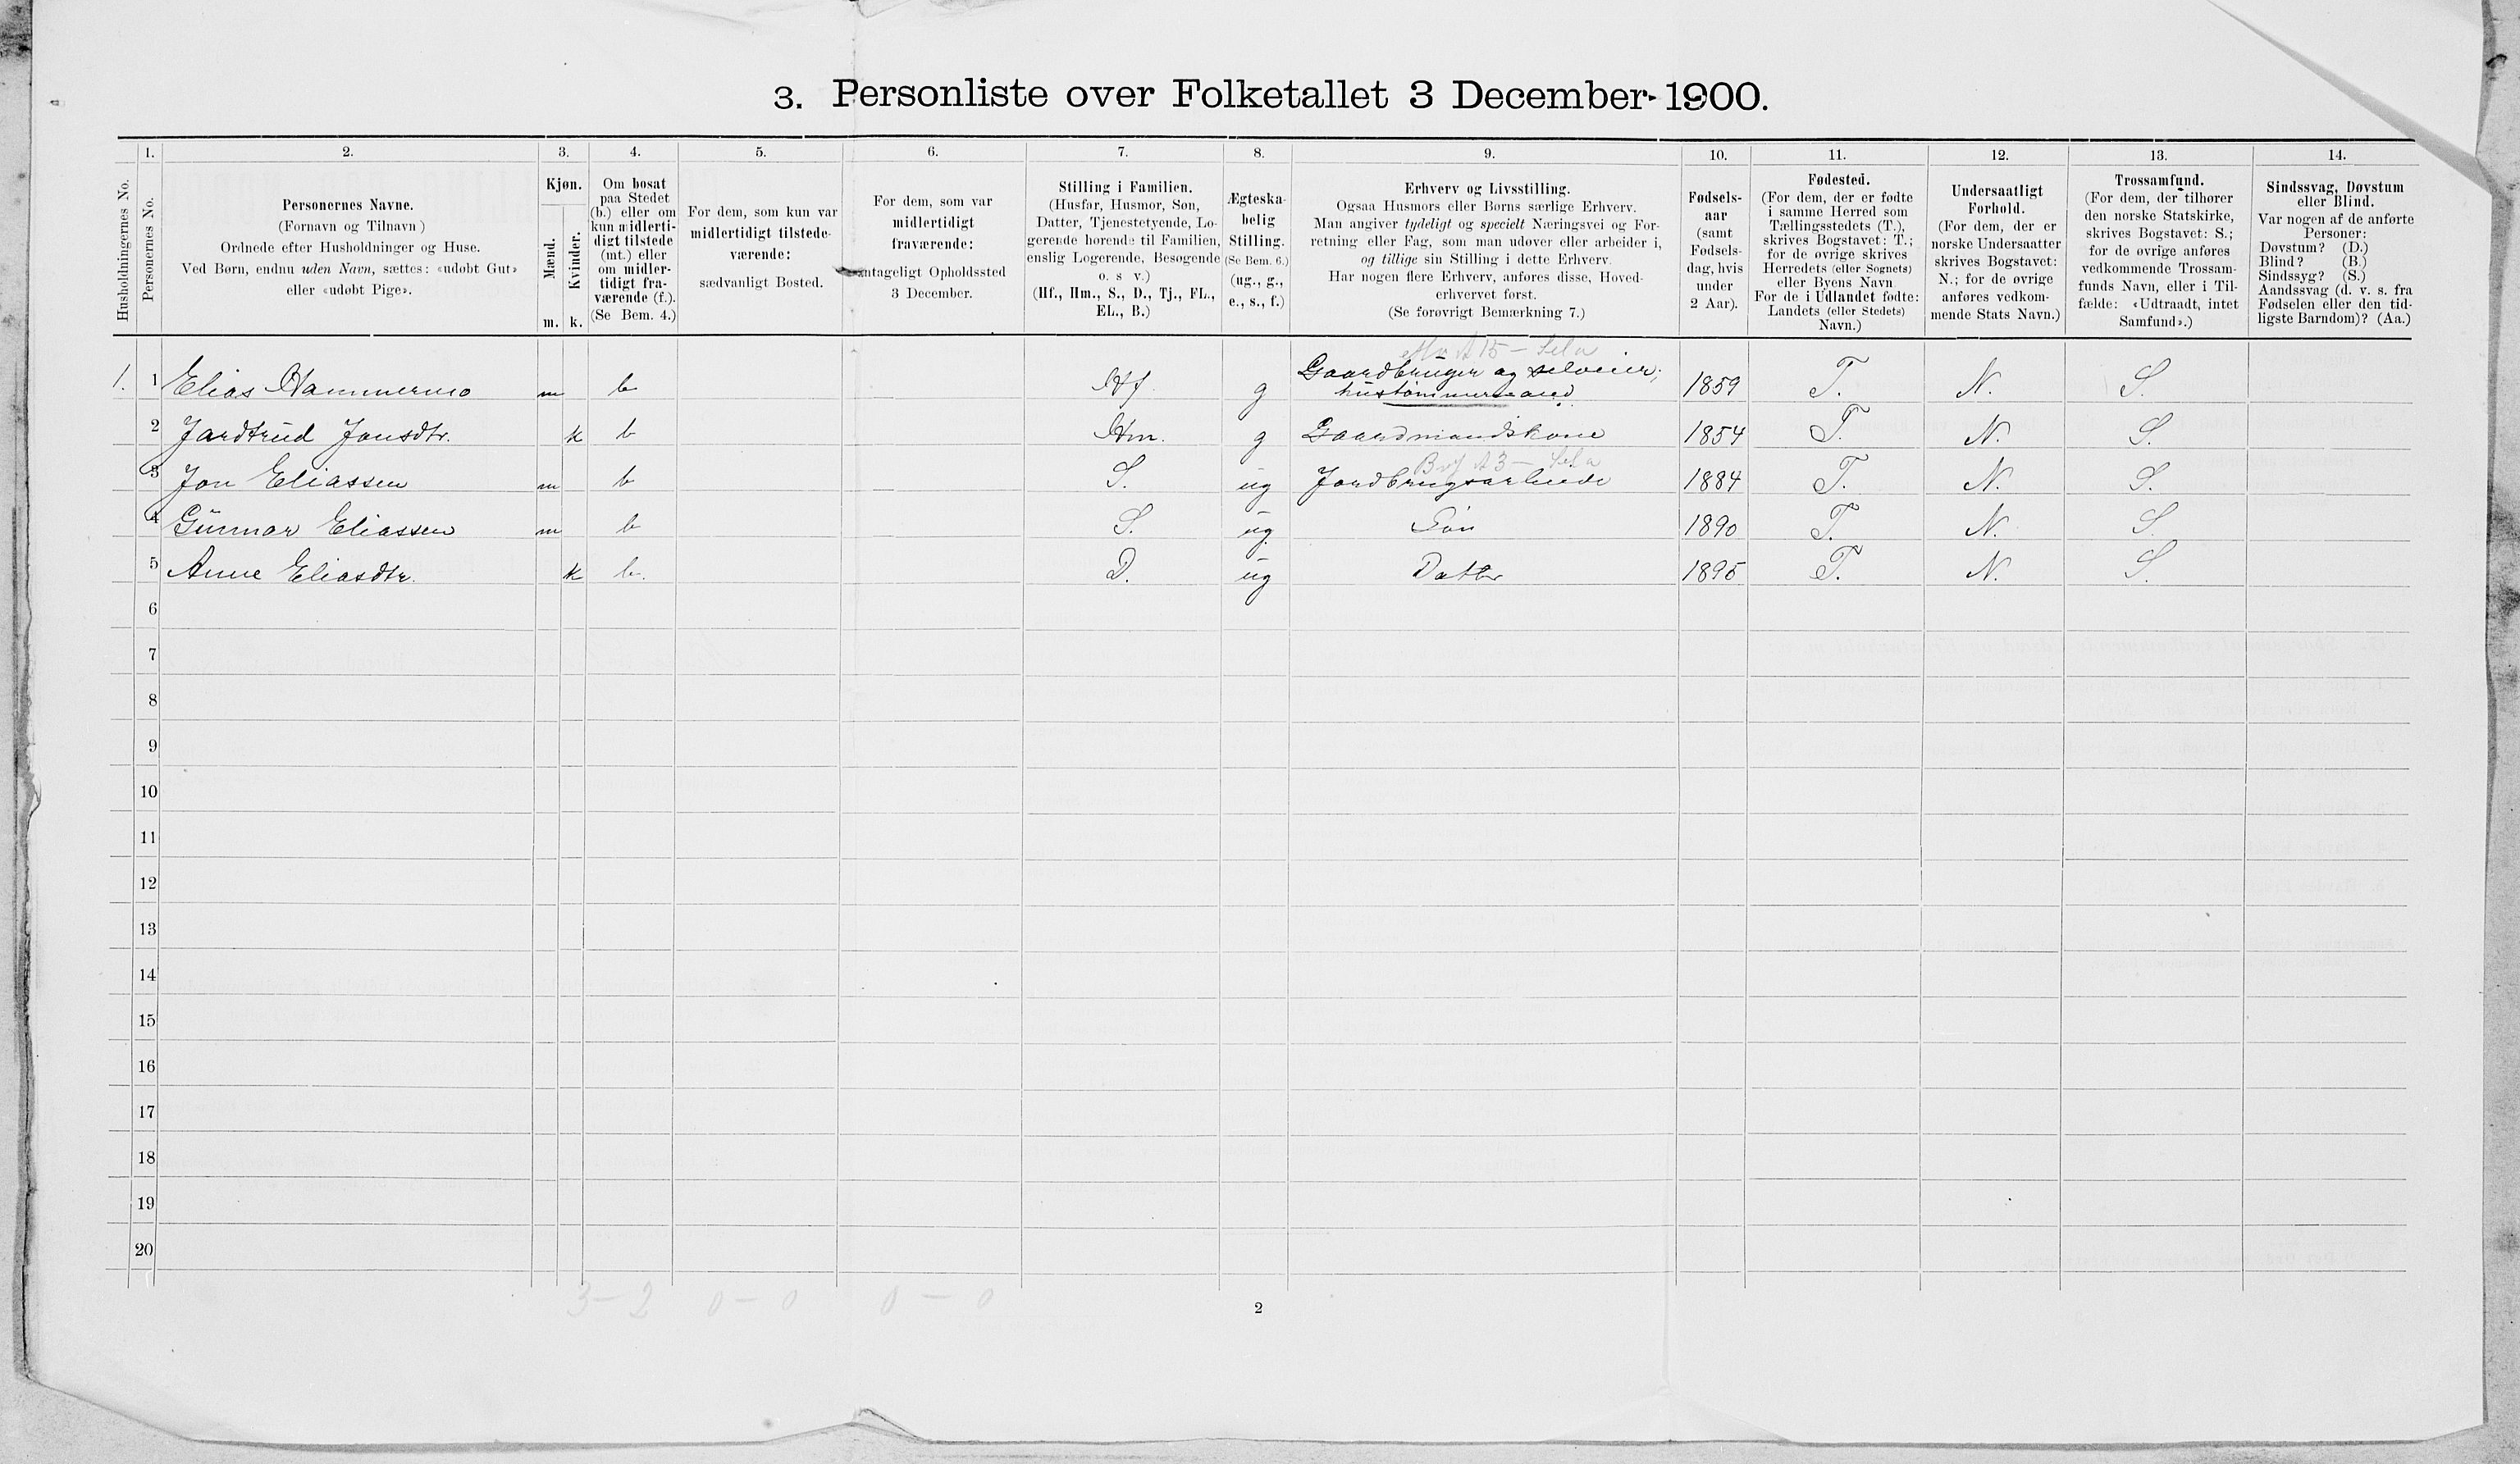 3. Personliste over Folketallet 3 December 1900.
1. 2. 3. 4. 5. 6. 7. 8. 9. 10. 11. 12. 13. 14.
Husholdningernes No.
Personernes No.
Personernes Navne.
(Fornavn og Tilnavn )
Ordnede efter Husholdninger og Huse.
Ved Børn, endnu uden Navn, sættes: «udøbt Gut»
eller «udøbt Pige».
Kjøn.
Mænd.
Kvinder.
m. k.
Om bosat
paa Stedet
(b.) eller om
kun midlerti-
digt tilstede
(mt.) eller
om midler-
tidigt fra-
værende (f.).
(Se Bem. 4.)
For dem, som kun var
midlertidigt tilstede-
værende:
sædvanligt Bosted.
For dem, som var
midlertidigt
fraværende:
antageligt Opholdssted
3 December.
Stilling i Familien.
(Husfar, Husmor, Søn,
Datter, Tjenestetyende, Lo-
gerende hørende til Familien,
enslig Logerende, Besøgende
o. s v.)
(Hf., Hm., S., D., Tj., FL.,
EL., B.)
Ægteska-
belig
Stilling.
(Se Bem. 6.)
(ug., g.,
e., s., f.)
Erhverv og Livsstilling.
Ogsaa Husmors eller Børns særlige Erhverv.
Man angiver tydeligt og specielt Næringsvei og For-
retning eller Fag, som man udøver eller arbeider i,
og tillige sin Stilling i dette Erhverv.
Har nogen flere Erhverv, anføres disse, Hoved-
erhvervet først.
(Se forøvrigt Bemærkning 7.)
Fødsels-
aar
(samt
Fødsels-
dag, hvis
under
2 Aar).
Fødested.
(For dem, der er fødte
i samme Herred som
Tællingsstedets (T.),
skrives Bogstavet: T.;
for de øvrige skrives
Herredets (eller Sognets)
eller Byens Navn
For de i Udlandet fødte:
Landets (eller Stedets)
Navn.)
Undersaatligt
Forhold.
(For dem, der er
norske Undersaatter
skrives Bogstavet:
N.; for de øvrige
anføres vedkom-
mende Stats Navn.)
Trossamfund.
(For dem, der tilhører
den norske Statskirke,
skrives Bogstavet: S.;
for de øvrige anføres
vedkommende Trossam-
funds Navn, eller i Til-
fælde: «Udtraadt, intet
Samfund».)
Sindssvag, Døvstum
eller Blind.
Var nogen af de anførte
Personer:
Døvstum? (D.)
Blind? (B.)
Sindssyg? (S.)
Aandssvag (d. v. s. fra
Fødselen eller den tid-
ligste Barndom)? (Aa.)
A 15 - Sela
1. 1 Elias Hammermo m b Hf. g Gaardbruger og selveier; 1859 T. N. S.
hustømmermand
2 Jardtrud Jonsdtr. k b Hm. g Gaardmandskone 1854 T. N. S.
A 3 - Sela
3 Jon Eliassen m b S. ug Jordbrugsarbeide 1884 T. N. S.
4 Gunnar Eliassen m b S. ug Søn 1890 T. N. S.
5 Anne Eliasdtr. k b. D. ug Datter 1895 T. N. S.
6
7
8
9
10
11
12
13
14
15
16
17
18
19
20
3 - 2 0 - 0 0 - 0
2